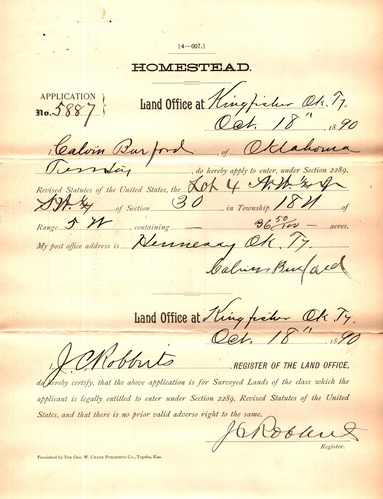 [4—007.]
HOMESTEAD.
APPLICATION
No. 5887
Land Office at Kingfisher Ok. Ty.
Oct. 18" 1890
I, Calvin Burford of Oklahoma
Territory do hereby apply to enter, under Section 2289,
Revised Statutes of the United States, the Lot 4
of Section 30 in Township 18 N of
Range 5 W containing 36 50/100 acres.
My post office address is Hennessey Ok. Ty.
Calvin Burford
Land Office at Kingfisher Ok. Ty.
Oct. 18" 1890
I, J. C. Robberts, REGISTER OF THE LAND OFFICE,
do hereby certify, that the above application is for Surveyed Lands of the class which the
applicant is legally entitled to enter under Section 2289, Revised Statutes of the United
States, and that there is no prior valid adverse right to the same.
J. C. Robberts
Register.
Furnished by THE GEO. W. CRANE PUBLISHING CO., Topeka, Kan.